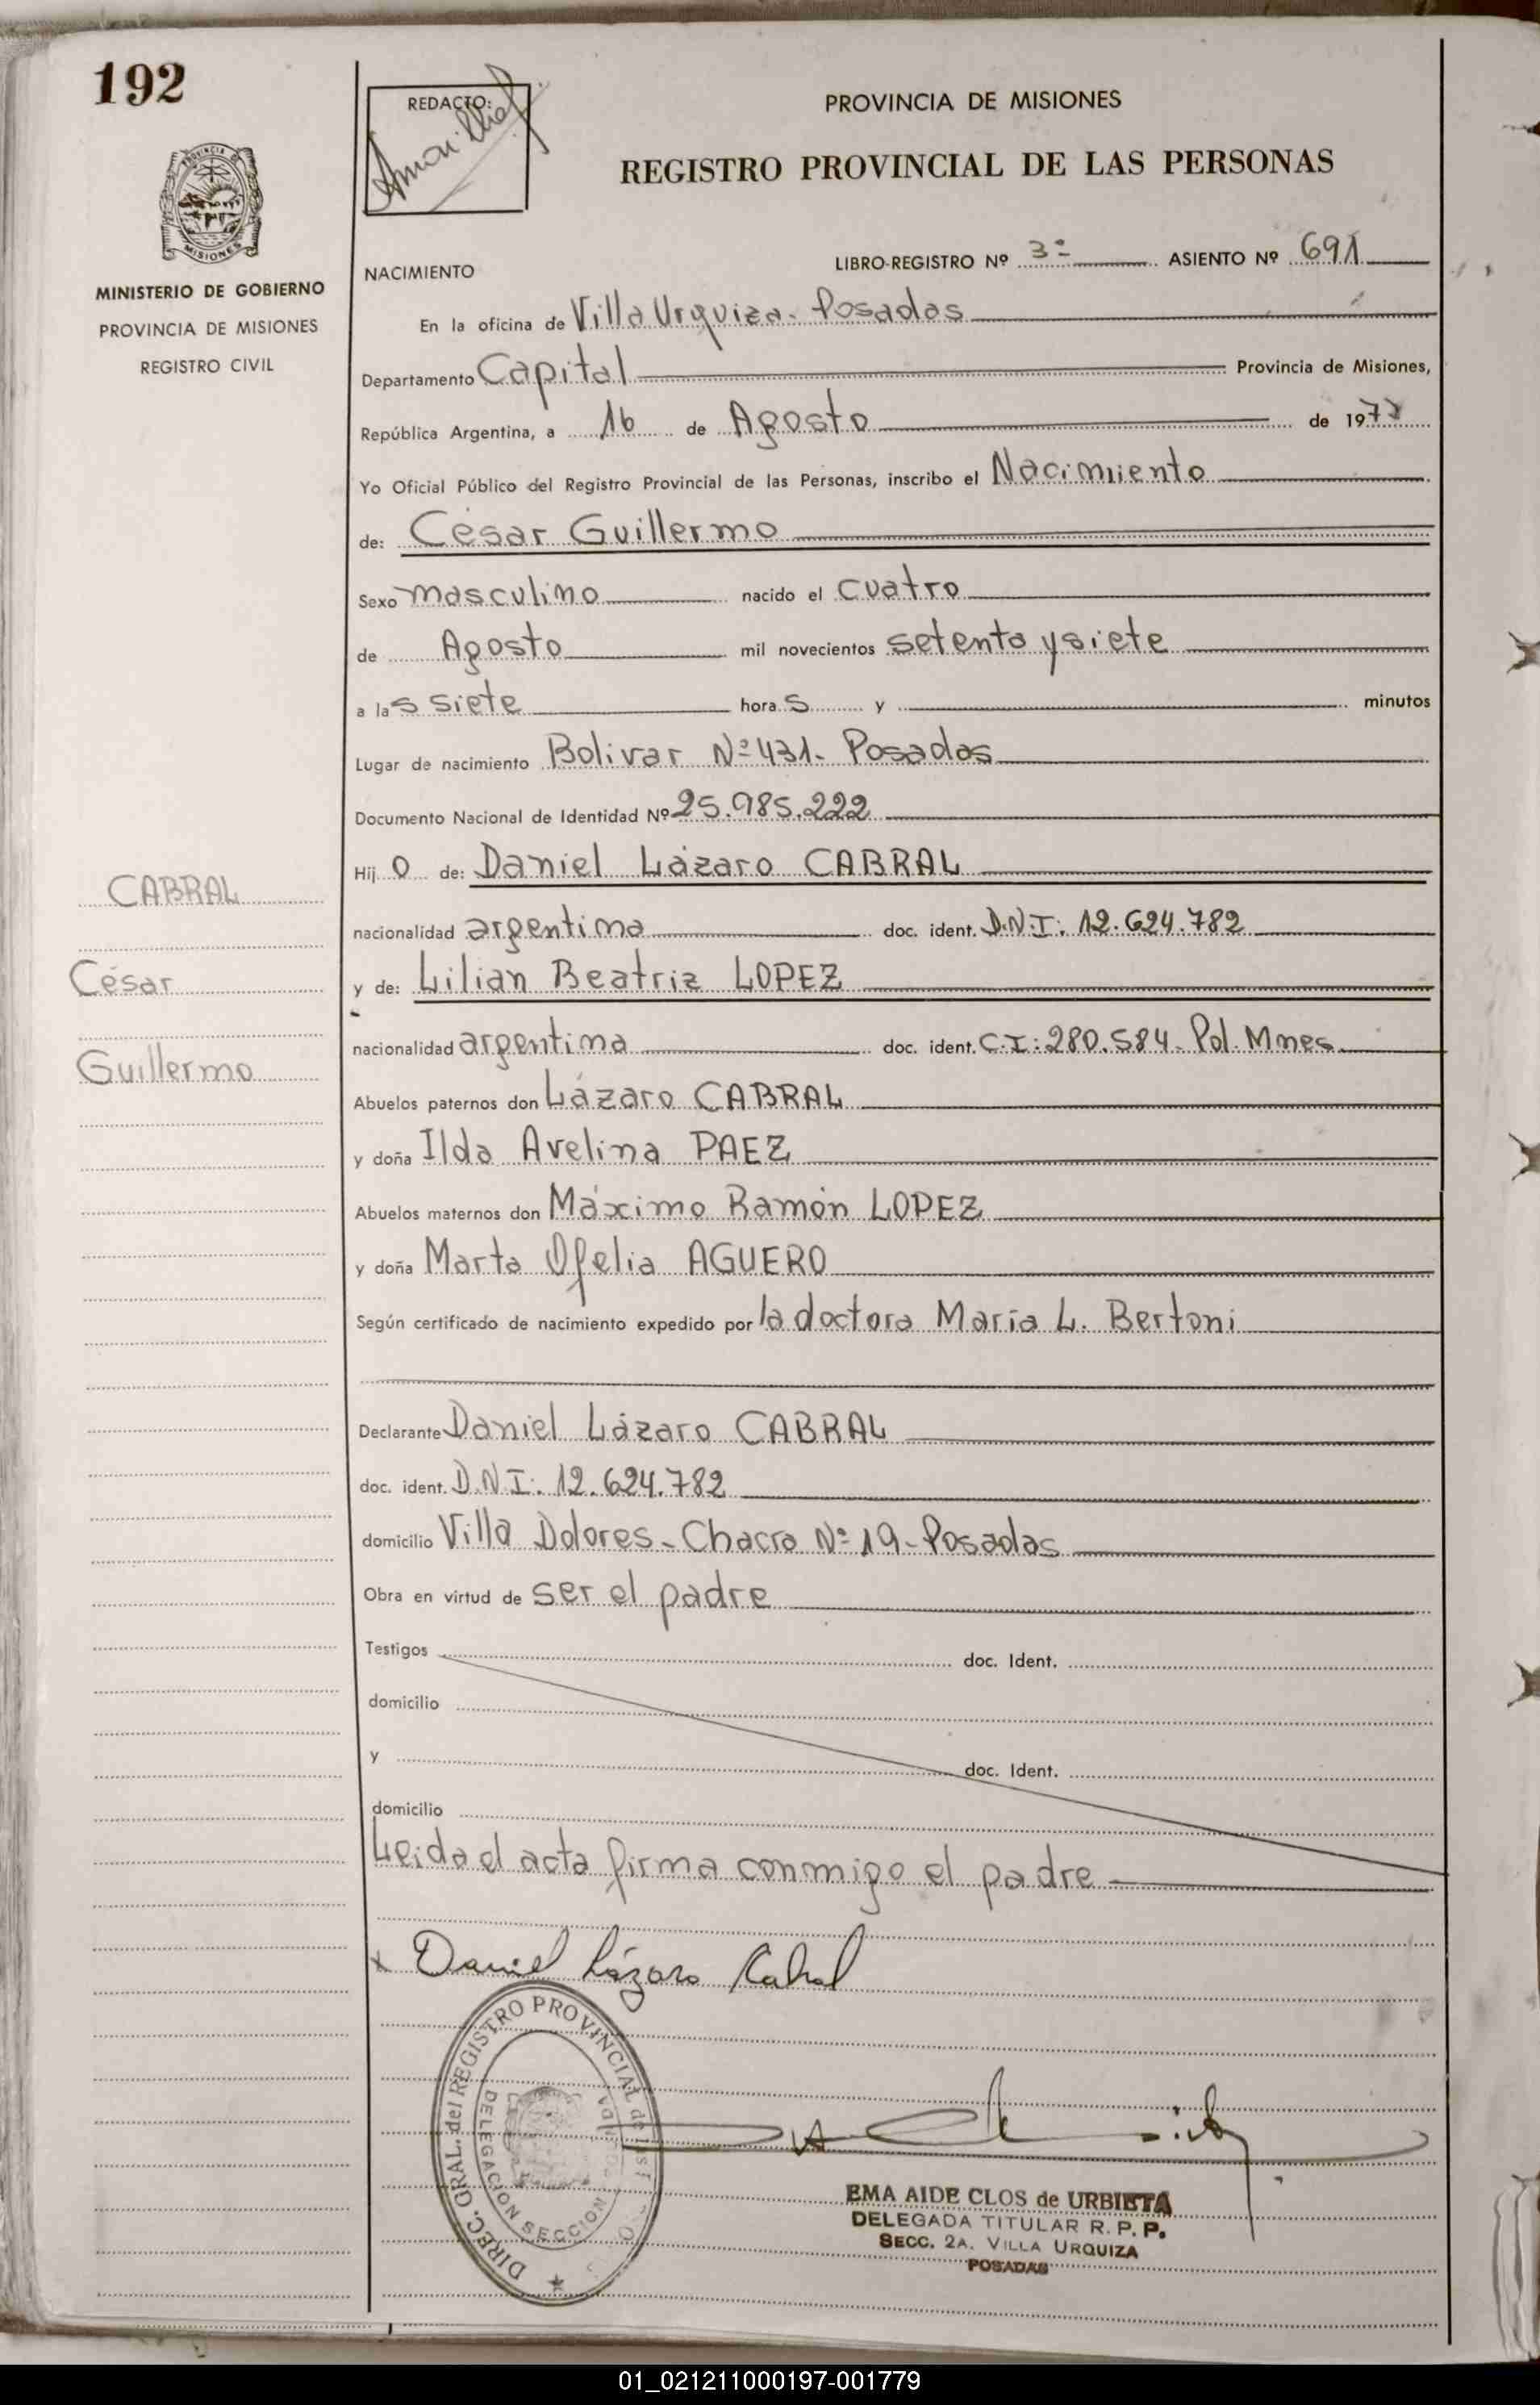 192
REDACTO:
PROVINCIA DE MISIONES
REGISTRO PROVINCIAL DE LAS PERSONAS
MISIONES
MINISTERIO DE GOBIERNO
PROVINCIA DE MISIONES
REGISTRO CIVIL
NACIMIENTO
LIBRO-REGISTRO Nº 3º ASIENTO Nº 691
En la oficina de Villa Urquiza - Posadas
Departamento Capital Provincia de Misiones,
República Argentina, a 16 de Agosto de 1977
Yo Oficial Público del Registro Provincial de las Personas, inscribo el Nacimiento
de: César Guillermo
Sexo masculino nacido el cuatro
de Agosto mil novecientos setenta y siete
a las siete horas y minutos
Lugar de nacimiento Bolivar Nº 431 - Posadas
Documento Nacional de Identidad Nº 25.985.222
Hijo de: Daniel Lázaro CABRAL
CABRAL
nacionalidad argentina doc. ident. D.N.I: 12.624.782
César
y de: Lilian Beatriz LOPEZ
nacionalidad argentina doc. ident. C.I: 280.584 - Pol. Mnes
Guillermo
Abuelos paternos don Lázaro CABRAL
y doña Ilda Avelina PAEZ
Abuelos maternos don Máximo Ramón LOPEZ
y doña Marta Ofelia AGUERO
Según certificado de nacimiento expedido por la doctora María L. Bertoni
Declarante Daniel Lázaro CABRAL
doc. ident. D.N.I: 12.624.782
domicilio Villa Dolores - Chacra Nº 19 - Posadas
Obra en virtud de ser el padre
Testigos doc. Ident.
domicilio
y doc. Ident.
domicilio
Leida el acta firma conmigo el padre
x Daniel Lázaro Cabral
DIREC. GRAL. del REGISTRO PROVINCIAL de las
DELEGACION SECCION
EMA AIDE CLOS de URBIETA
DELEGADA TITULAR R. P. P.
SECC. 2A. VILLA URQUIZA
POSADAS
01_021211000197-001779